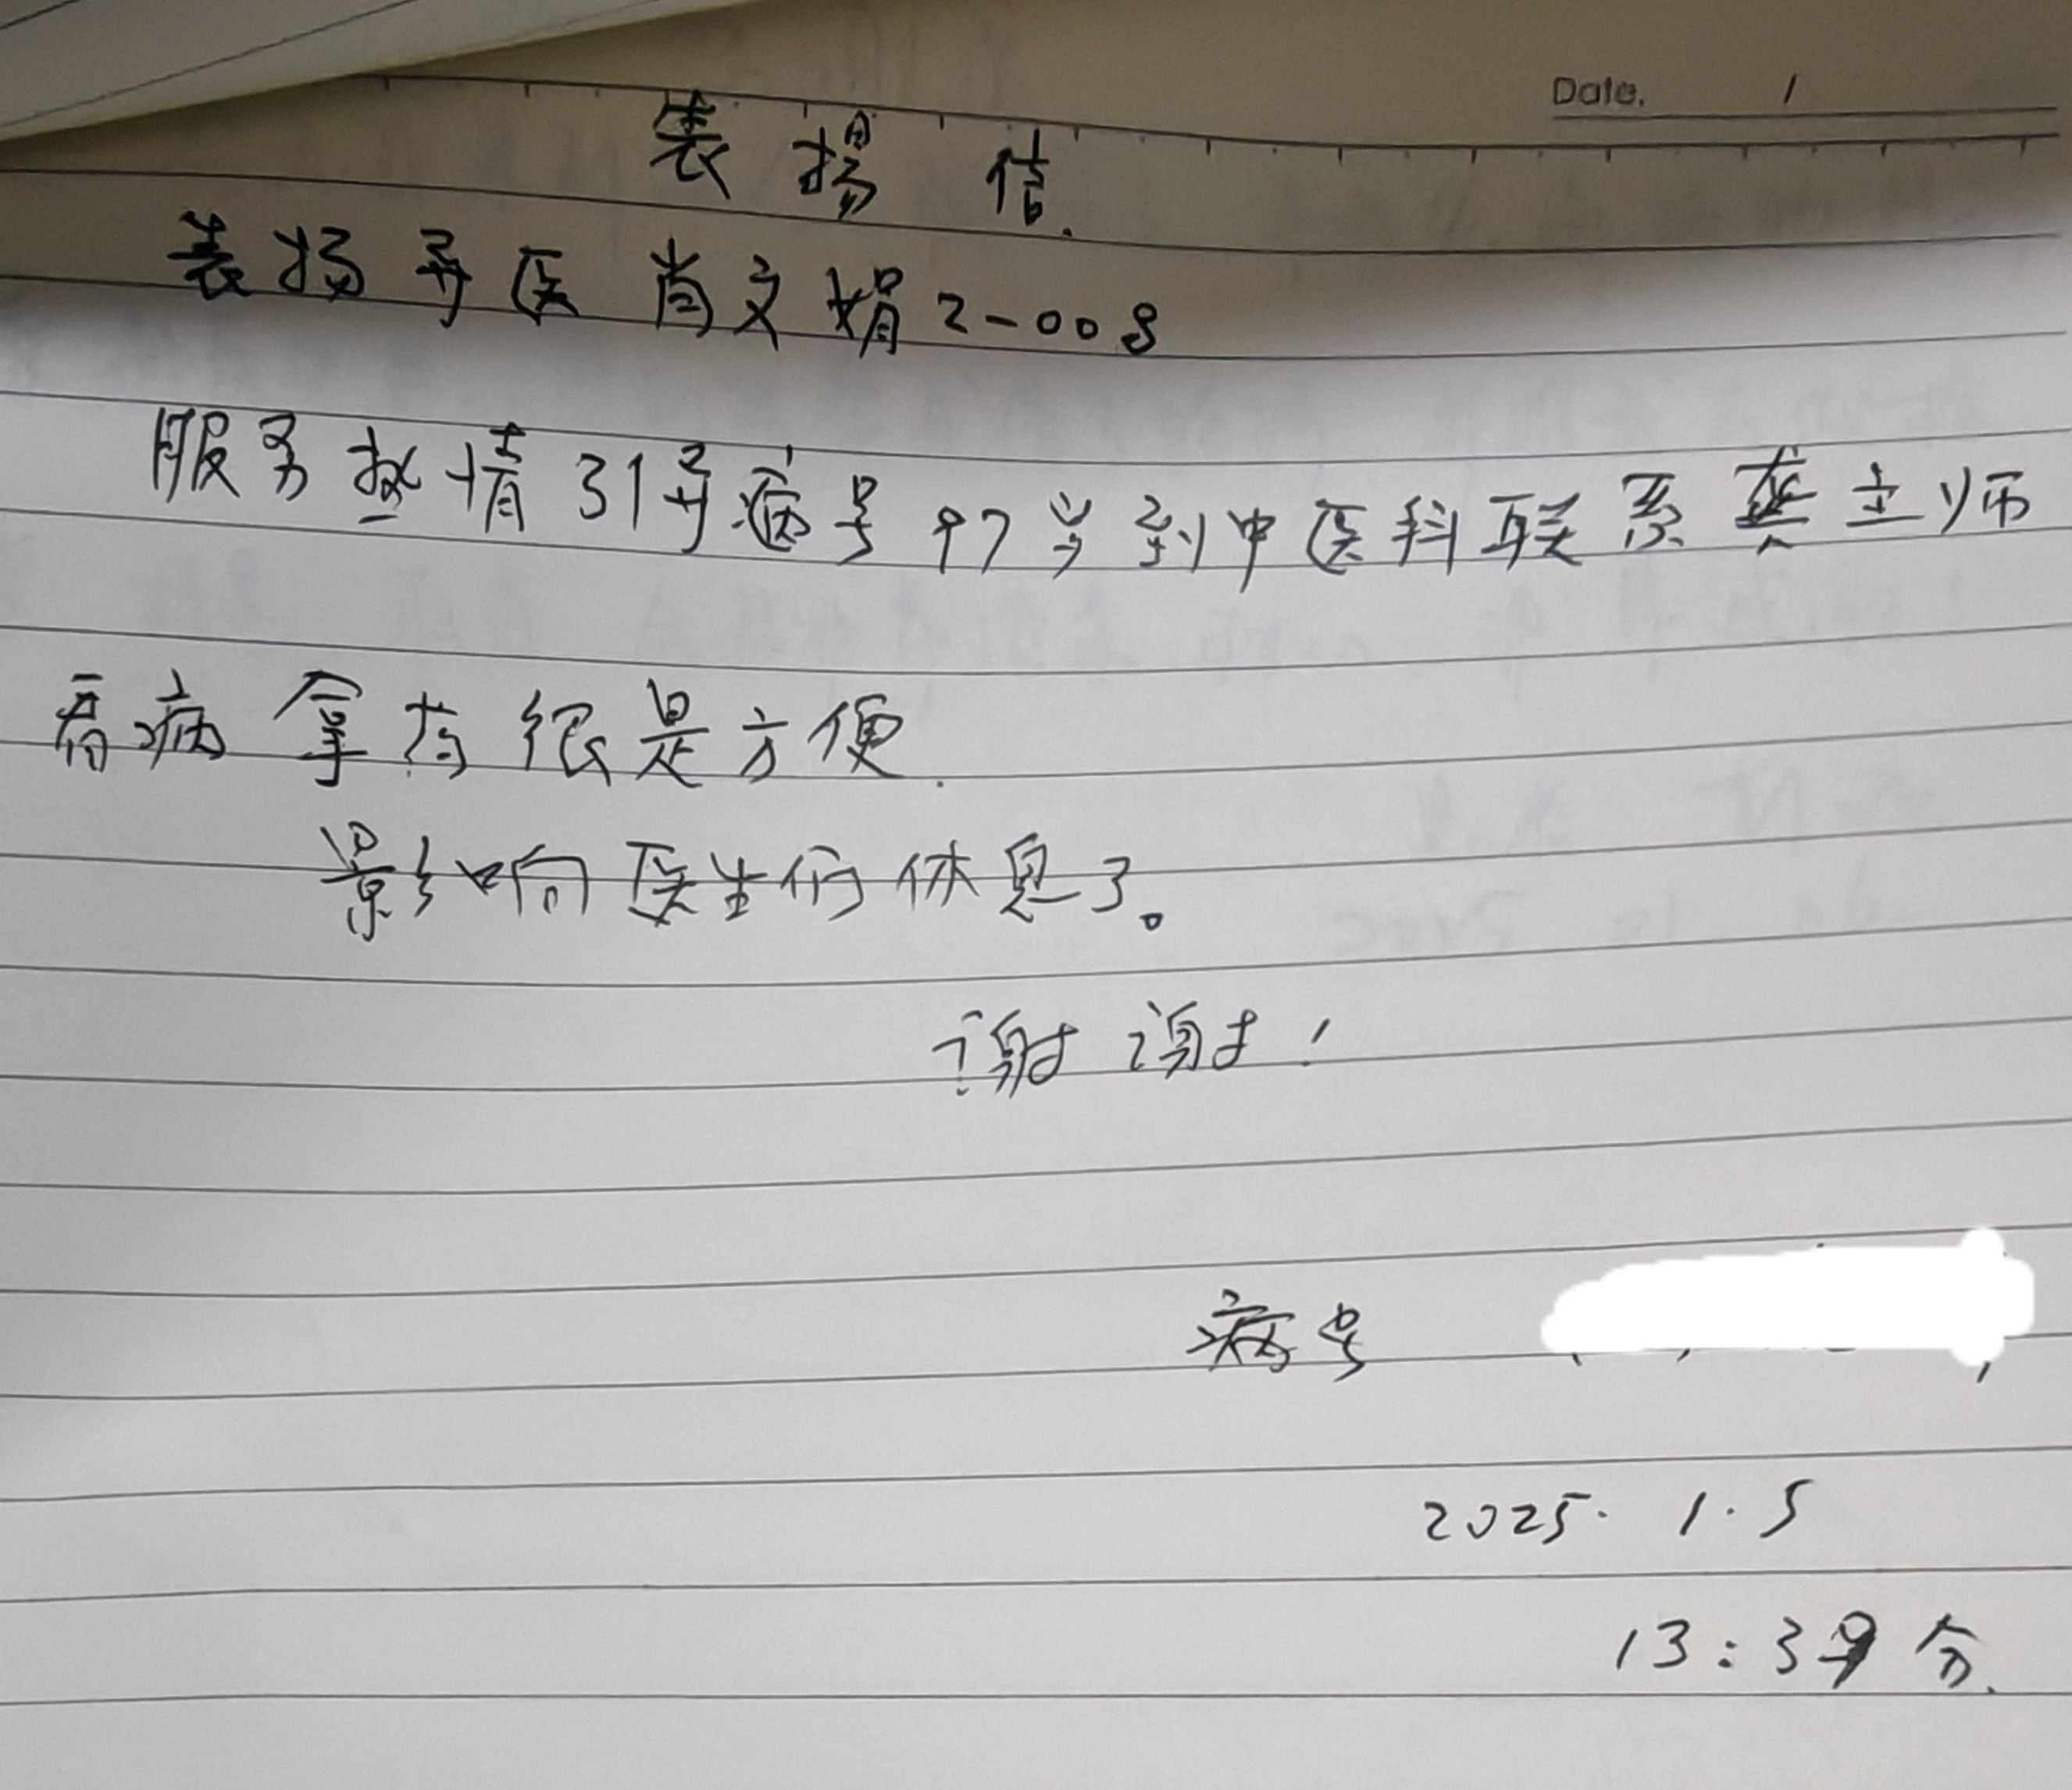 Date. /
表扬信.
表扬导医肖文娟2-008
服务热情引导病号97岁到中医科联系 主师
看病拿药很是方便.
影响医生们休息了。
谢谢!
病号
2025.1.5
13:39分.